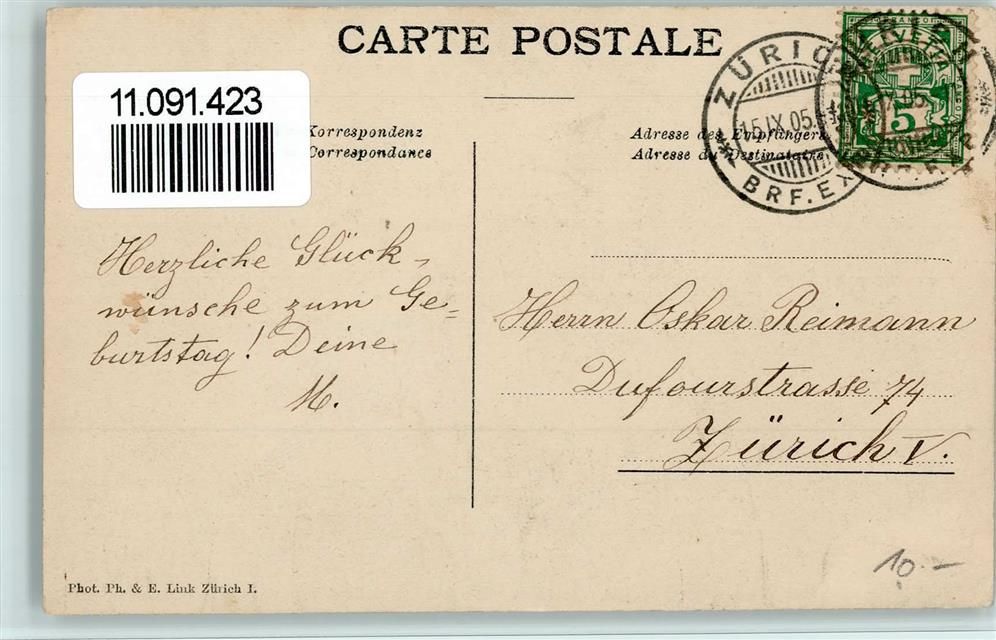 CARTE POSTALE
11.091.423
Korrespondenz
Correspondance
Adresse des Empfängers
Adresse du Destinataire
ZÜRICH
15.IX.05.
BRF.EX
HELVETIA
FRANCO
5
Herzliche Glück-
wünsche zum Ge-
burtstag! Deine
M.
Herrn Oskar Reimann
Dufourstrasse 74
Zürich V.
Phot. Ph. & E. Link Zürich I.
10.-